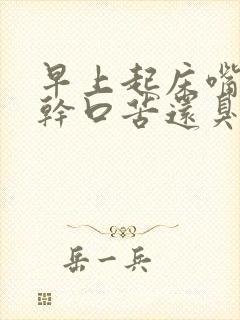 早上起床嘴
幹口苦還臭
岳一兵